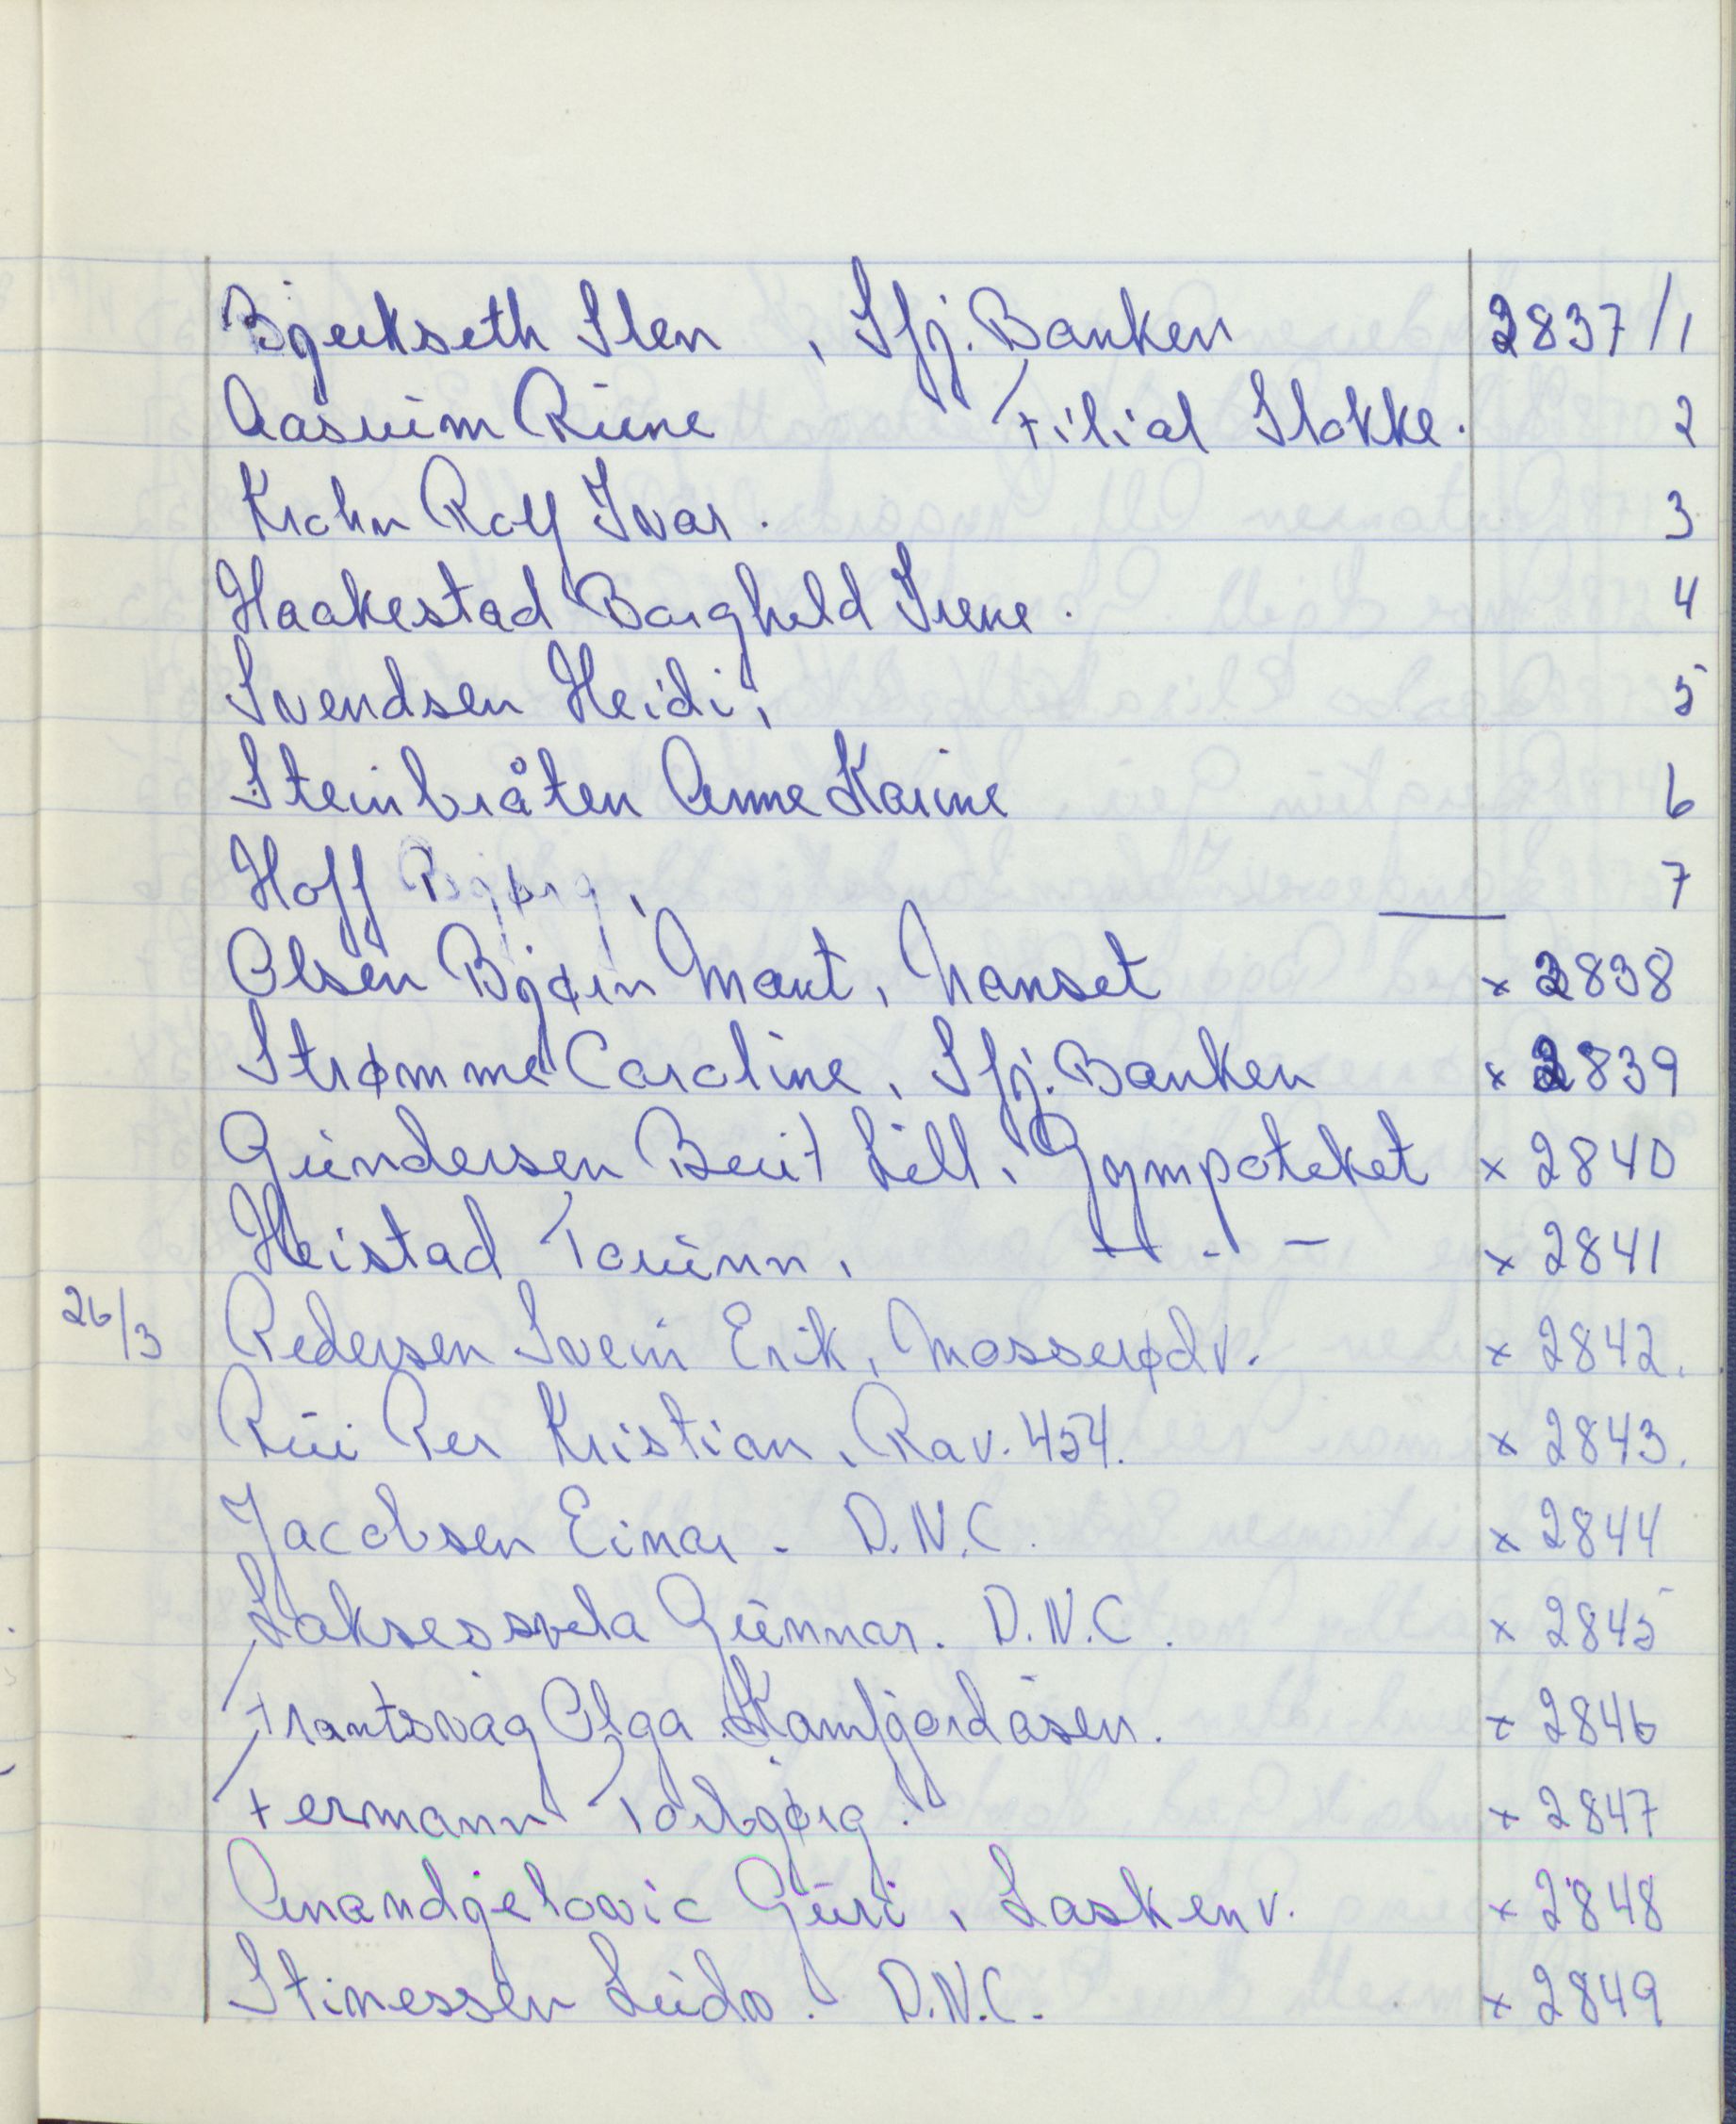 Bjerkseth Sten , Sfj. Banken 2837/1
Aasrum Rune Filial Stokke. 2
Krohn Rolf Ivar. 3
Haakestad Borghild Irene. 4
Svendsen Heidi, 5
Steinbråten Anne Karine 6
Hoff Bjørg, 7
Olsen Bjørn Marit, Nanset x 2838
Strømme Caroline, Sfj. Banken x 2839
Gundersen Berit Lill, Gympoteket x 2840
Heistad Torunn, — - — x 2841
26/3 Pedersen Svein Erik, Mosserødv. x 2842.
Rui Per Kristian, Rav. 454. x 2843.
Jacobsen Einar. D.N.C. x 2844
Laksesvela Gunnar. D.N.C. x 2845
Frantsvåg Olga Kamfjordåsen. x 2846
Fermann Torbjørg. x 2847
Anandgelovic Guri, Laskenv. x 2848
Stinessen Leidv. D.N.C. x 2849